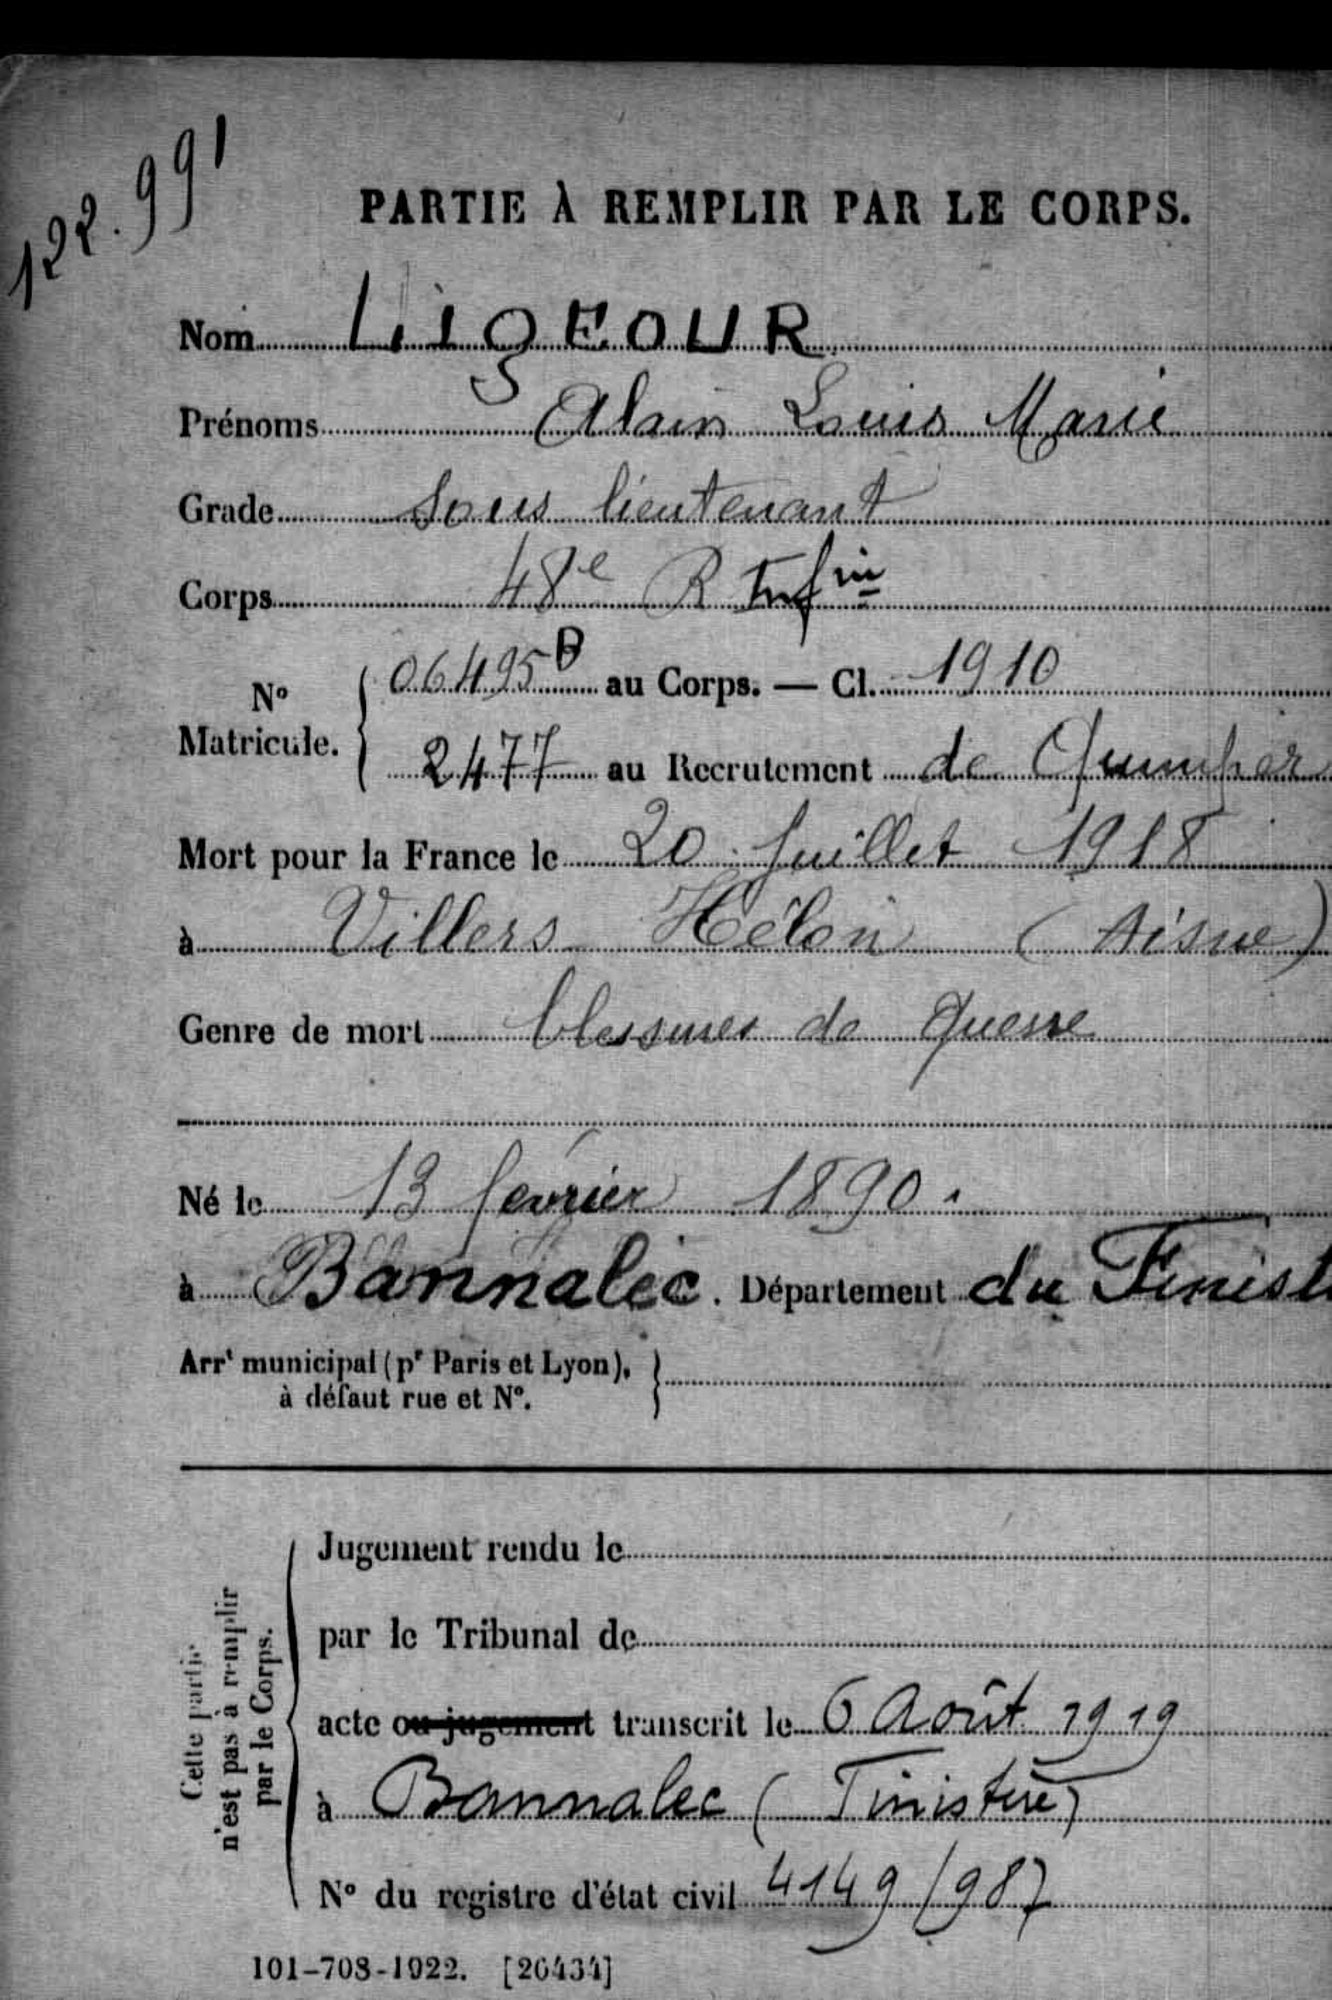 122.991
PARTIE À REMPLIR PAR LE CORPS.
Nom LIJEOUR
Prénoms Alain Louis Marie
Grade Sous lieutenant
Corps 48e R Infie
N° Matricule. { 06495 B au Corps. — Cl. 1910
2477 au Recrutement de Quimper
Mort pour la France le 20 Juillet 1918
à Villers Hélon (Aisne)
Genre de mort blessures de guerre
Né le 13 février 1890.
à Bannalec. Département du Finist
Arrt municipal (pr Paris et Lyon), }
à défaut rue et N°.
Cette partie
n'est pas à remplir
par le Corps.
Jugement rendu le
par le Tribunal de
acte ou jugement transcrit le 6 Août 1919
à Bannalec (Finistère)
N° du registre d'état civil 4149/987
101-708-1922. [26434]